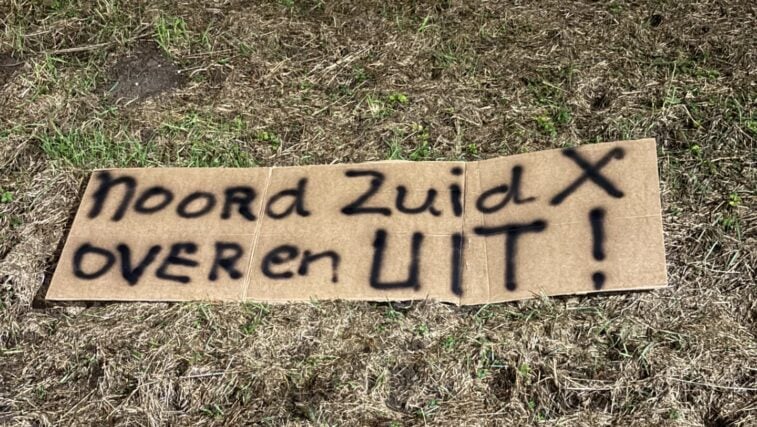 NOORd ZUid X
OVER en UIT!